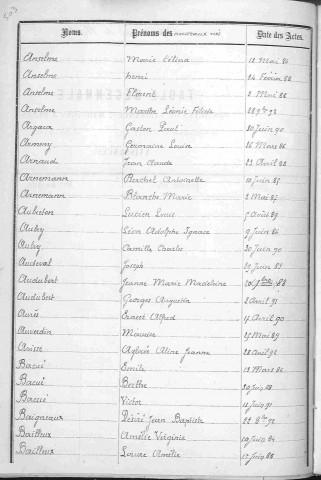 Noms. Prénoms des nouveaux nés Date des Actes.
Anselme Marie Célina 12 Mai 86
Anselme Henri 24 Février 88
Anselme Florent 2 Mai 86
Anselme Marthe Léonie
Argaux Gaston Paul 30 Juin 90
Armory Germaine Louise 16 Mars 86
Arnaud Jean Claude 23 Avril 92
Arnemann Rachel Antoinette 10 Juin 85
Arnemann Blanche Marie 2 Mai
Aubeton Lucien Louis Août 89
Aubry Léon Adolphe Ignace 9 Juin 84
Aubry Camille Charles 30 Juin 90
Audeval Joseph 29 Juin 85
Audubert Jeanne Marie Madeleine 88
Audubert Georges Augustin 2 Avril 91
Auvé Ernest Alfred 4 Avril 90
Auverdin Maurice 25 Mai 89
Avisse Aglaée Aline Jeanne 28 Avril 92
Bacué Emile 13 Mars 86
Bacué Berthe 30 Juin 88
Bacué Victor 11 Juin 91
Baigneaux Désiré Jean Baptiste 22 8bre 92
Bailleux Amélie Virginie 10 Juin 84
Bailleux Louise Amélie 12 Juin 86